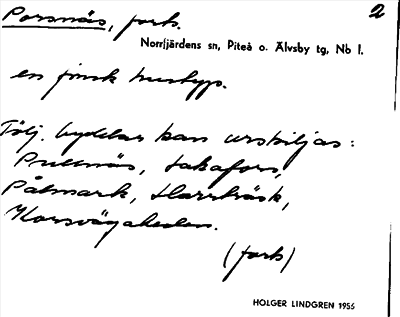 Porsnäs, forts. 2
Norrfjärdens sn, Piteå o. Älvsby tg, Nb l.
en finsk hustyp.
Följ. bydelar kan urskiljas:
Pullnäs, Lakafors,
Pålmark, Harrträsk,
Korsvägsheden.
(forts)
HOLGER LINDGREN 1956